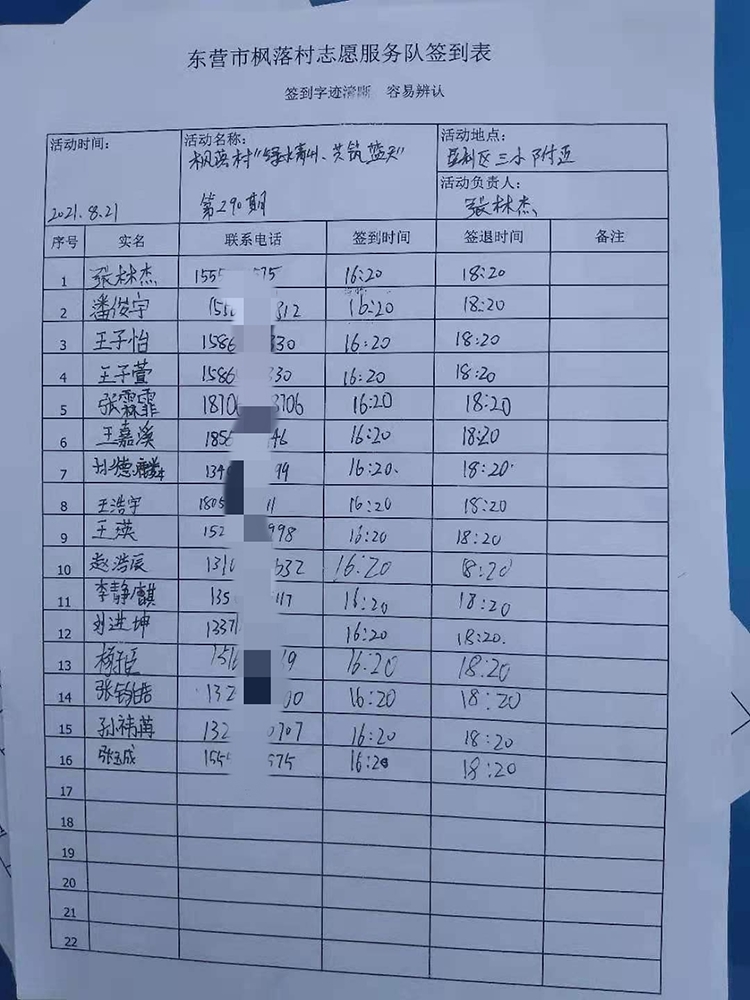 东营市枫落村志愿服务队签到表
签到字迹清晰 容易辨认
活动时间： 活动名称： 活动地点：
枫落村"绿水青州、共筑蓝天" 垦利区三小附近
活动负责人：
2021.8.21 第290期 张林杰
序号 实名 联系电话 签到时间 签退时间 备注
1 张林杰 155 575 16:20 18:20
2 潘俊宇 151 312 16:20 18:20
3 王子怡 1586 330 16:20 18:20
4 王子萱 1586 330 16:20 18:20
5 张霖霏 1870 3706 16:20 18:20
6 王嘉溪 185 46 16:20 18:20
7 德麟 134 99 16:20. 18:20.
8 王浩宇 180 11 16:20 18:20
9 王瑛 152 998 16:20 18:20
10 赵浩辰 131 532 16:20 18:20
11 李静麒 135 117 16:20 18:20
12 刘进坤 1337 16:20 18:20.
13 151 19 16:20 18:20
14 张钧皓 132 00 16:20 18:20
15 孙祎苒 132 0707 16:20 18:20
16 张玉成 155 575 16:20 18:20
17
18
19
20
21
22